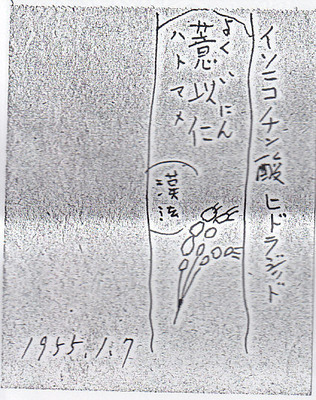 イソニコチン酸ヒドラジッド
よくいにん
薏苡仁
ハトマメ
漢法
1955.1.7